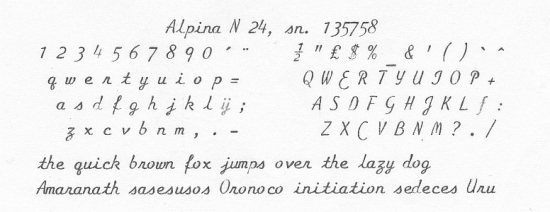 Alpina N 24, sn. 135758
1 2 3 4 5 6 7 8 9 0 ´ ¨ ½ " £ $ % _ & ' ( ) ` ^
q w e r t y u i o p = Q W E R T Y U I O P +
a s d f g h j k l ij ; A S D F G H J K L ƒ :
z x c v b n m , . - Z X C V B N M ? . /
the quick brown fox jumps over the lazy dog
Amaranath sasesusos Oronoco initiation sedeces Uru